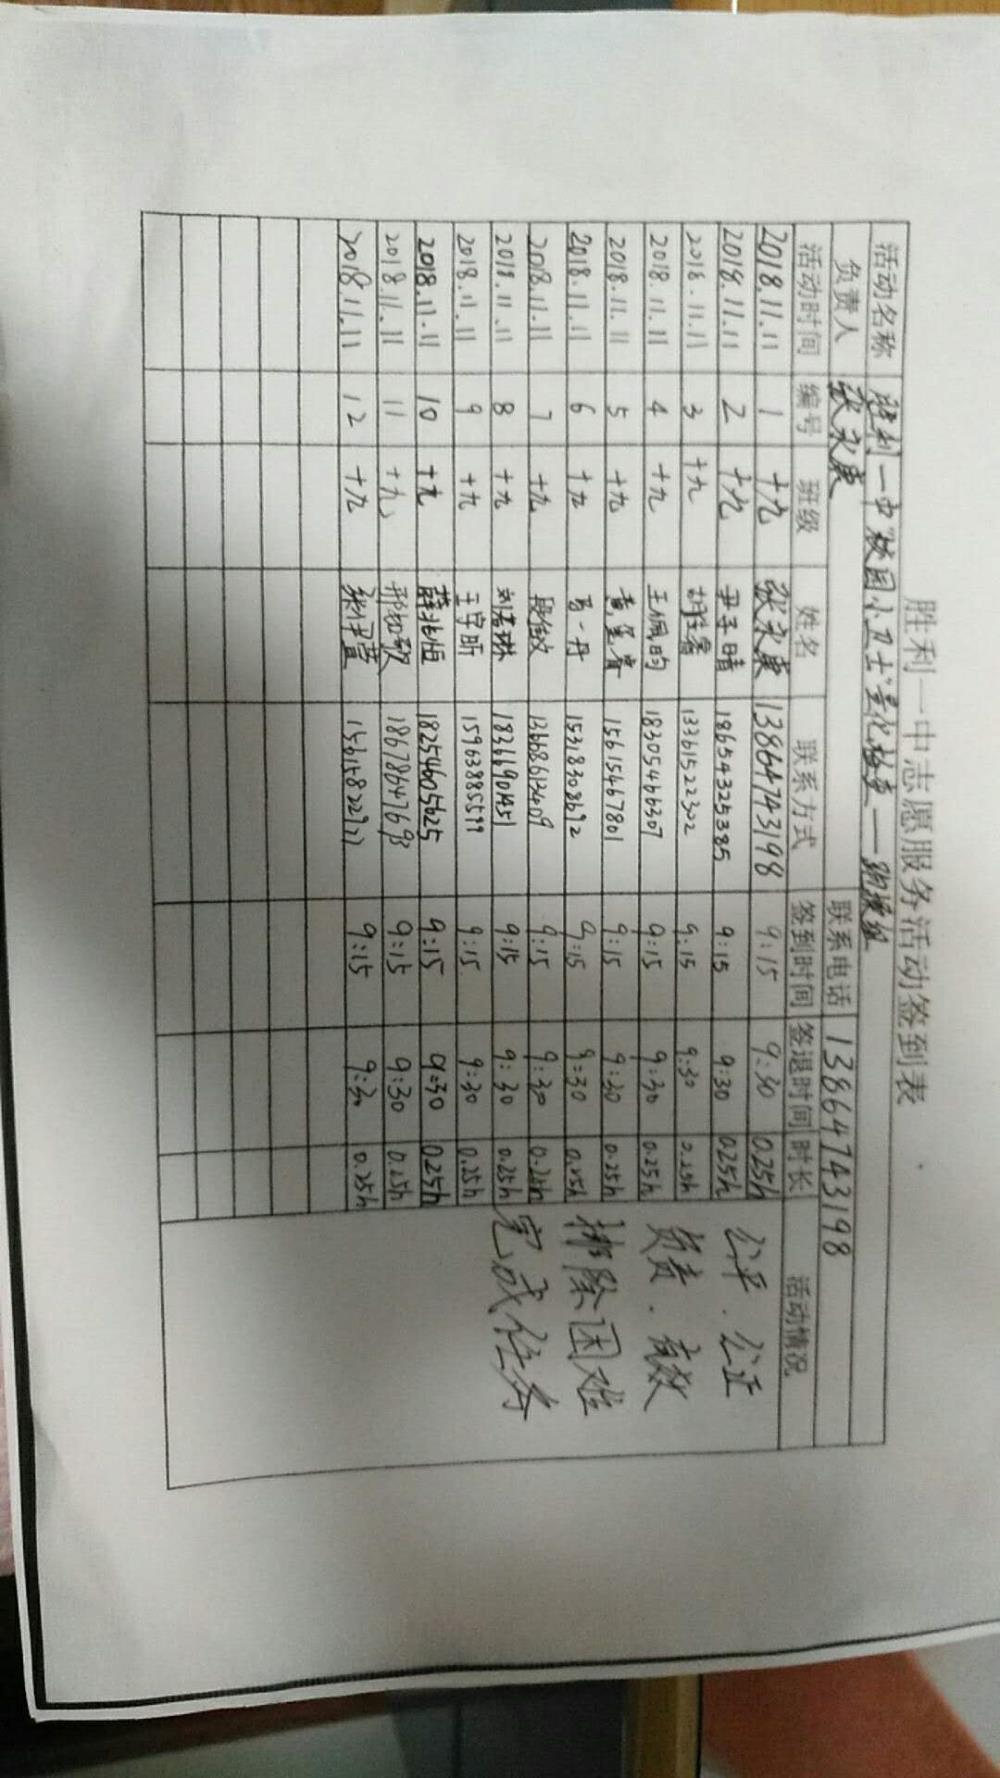 胜利一中志愿服务活动签到表
活动名称 胜利一中"校园小卫士"量化检查——纠援组
负责人 张永康 联系电话 13864743198
活动时间 编号 班级 姓名 联系方式 签到时间 签退时间 时长 活动情况
2018.11.11 1 十九 张永康 13864743198 9:15 9:30 0.25h
2018.11.11 2 十九 尹子晴 18654325385 9:15 9:30 0.25h
2018.11.11 3 十九 13361522302 9:15 9:30 0.25h
2018.11.11 4 十九 王佩昀 18305466307 9:15 9:30 0.25h
2018.11.11 5 十九 15615467801 9:15 9:30 0.25h
2018.11.11 6 十九 一丹 15318308692 9:15 9:30 0.25h
2018.11.11 7 十九 13668613409 9:15 9:30 0.25h
2018.11.11 8 十九 刘若琳 18366901451 9:15 9:30 0.25h
2018.11.11 9 十九 王宇昕 15963885599 9:15 9:30 0.25h
2018.11.11 10 十九 薛兆恒 18254605625 9:15 9:30 0.25h
2018.11.11 11 十九 邢如歌 18678647698 9:15 9:30 0.25h
2018.11.11 12 十九 9:15 9:30 0.25h
公平.公正
负责.高效
排除困难
完成任务